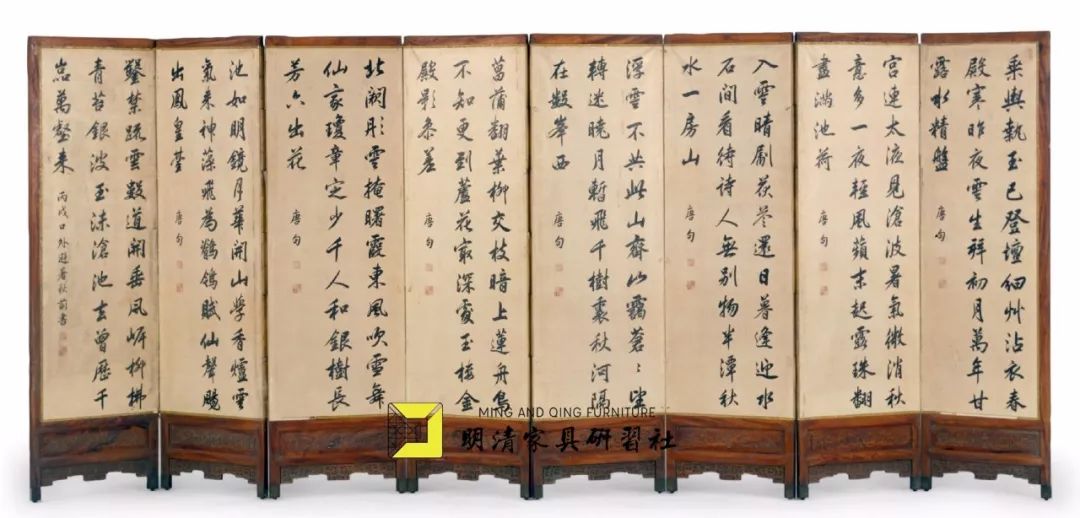 乘輿執玉已登壇細艸沾衣春
殿寒昨夜雲生拜初月萬年甘
露水精盤
唐句
宮連太液見滄波暑氣微消秋
意多一夜輕風蘋末起露珠翻
盡滿池荷
唐句
入雲晴劚茯苓還日暮逢迎水
石間看待詩人無別物半潭秋
水一房山
唐句
浮雲不共此山齊山靄蒼〻望
轉迷曉月暫飛千樹裏秋河隔
在數峯西
唐句
菖蒲翻葉柳交枝暗上蓮舟鳥
不知更到蘆花最深處玉樓金
殿影參差
唐句
北闕彤雲掩曙霞東風吹雪舞
仙家瓊章定少千人和銀樹長
芳六出花
唐句
池如明鏡月華開山學香爐雲
氣來神藻飛為鶺鴒賦仙聲飈
出鳳皇臺
唐句
鑿禁疏雲數道開垂風岸柳拂
青苔銀波玉沫滄池去曾歷千
嵓萬壑来
丙戌口外避暑秋前書
MING AND QING FURNITURE
明清家具研習社